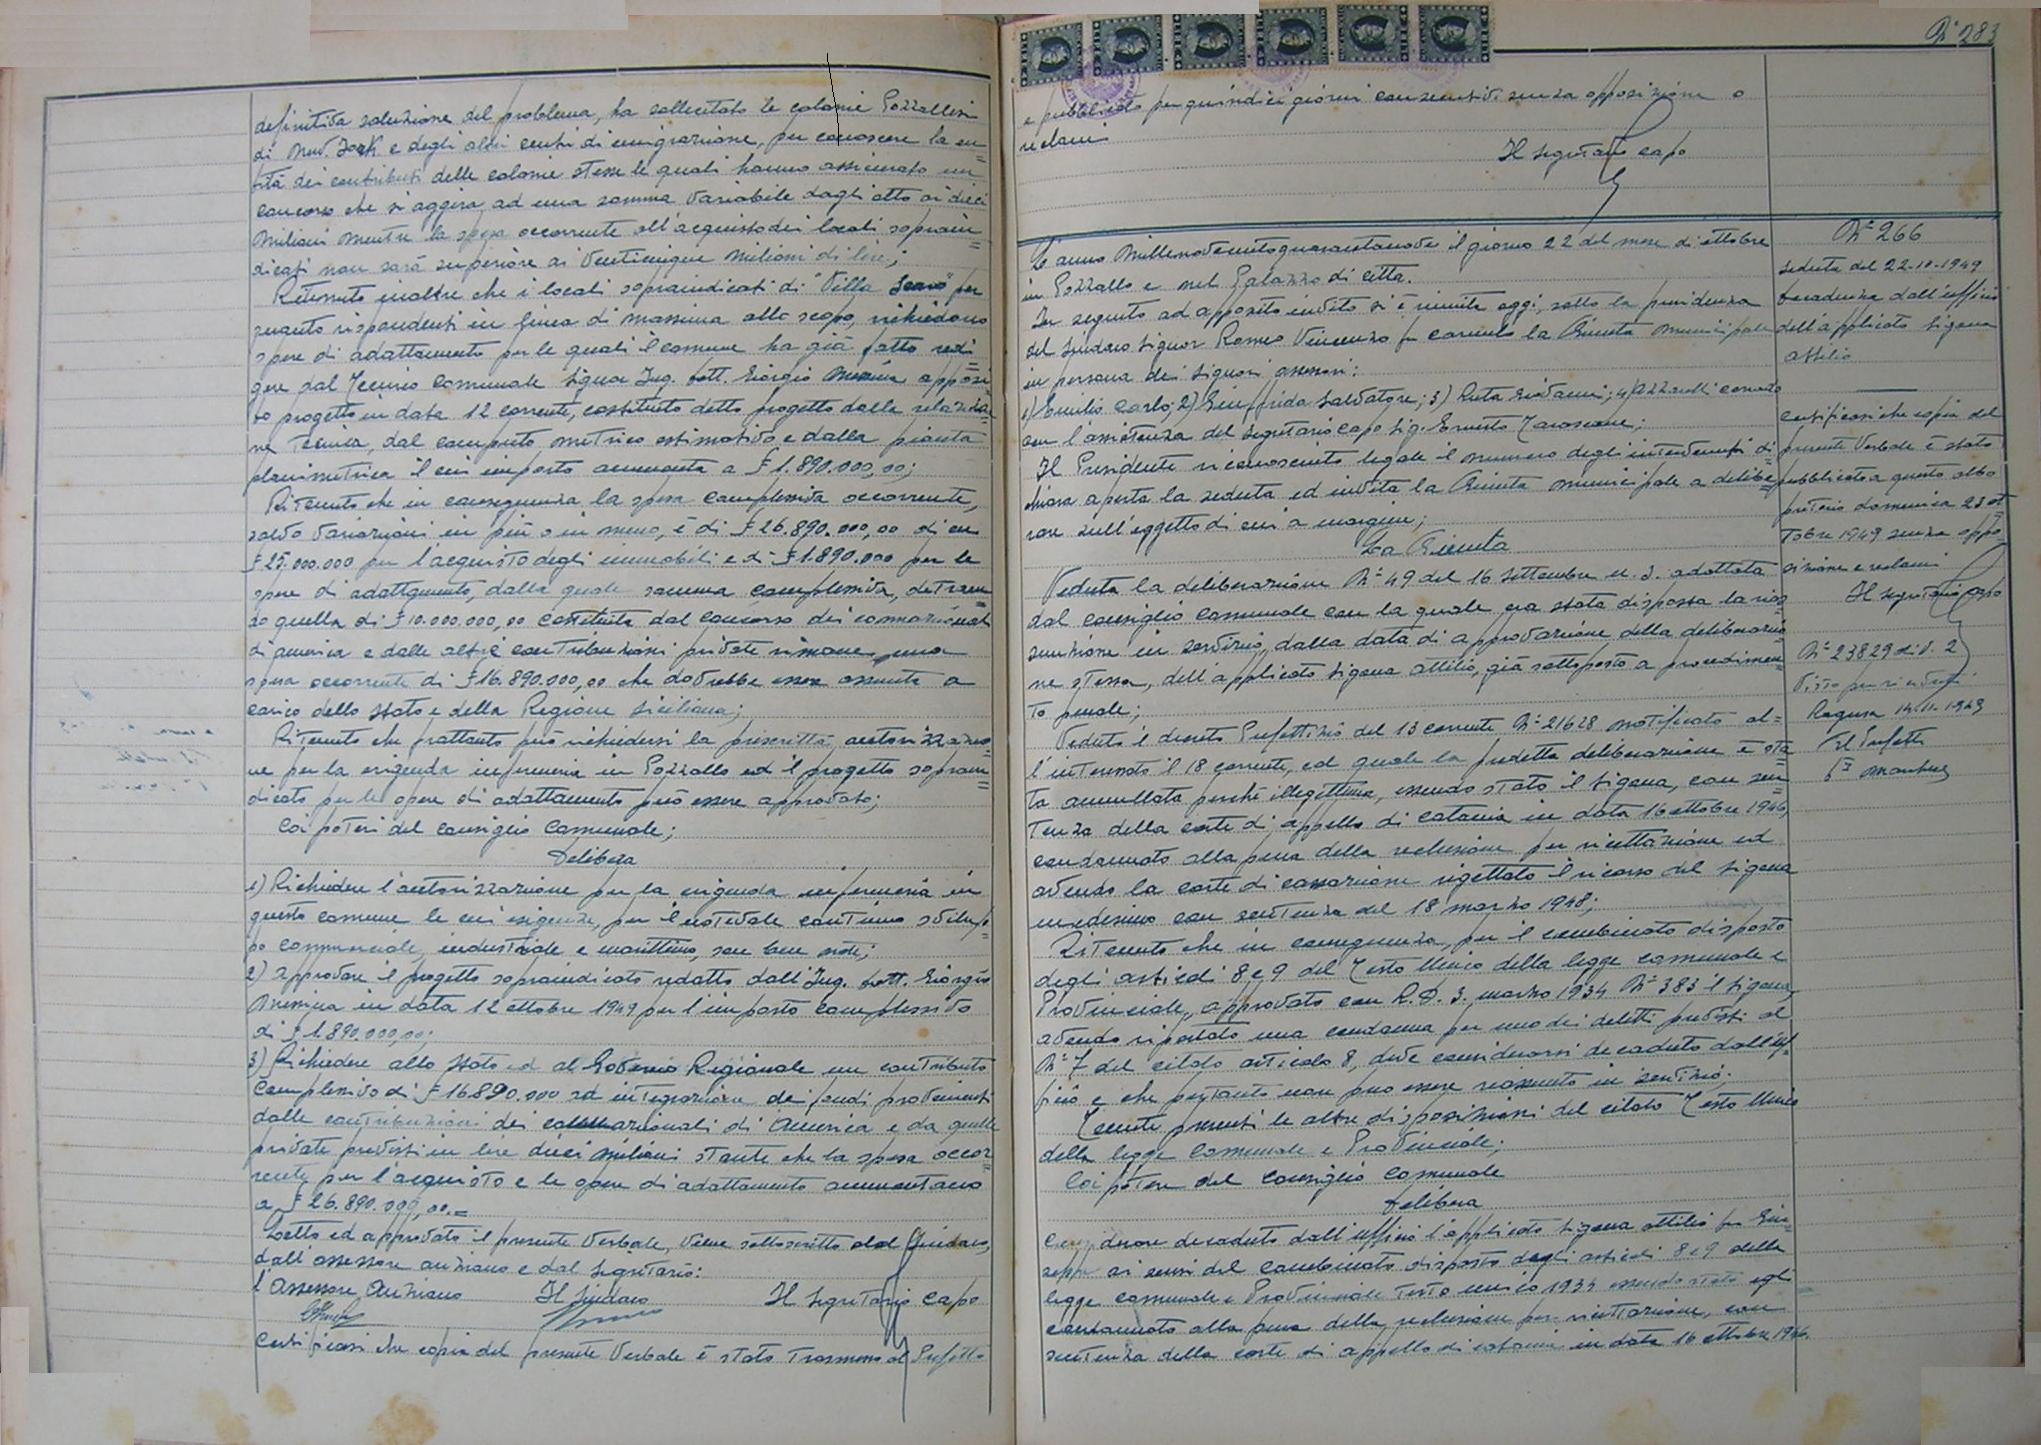 definitiva soluzione del problema, ha sollecitato le colonie Pozzallesi
di New. York e degli altri centri di emigrazione, per conoscere la en=
tità dei contributi delle colonie stesse le quali hanno assicurato un
concorso che si aggira ad una somma variabile dagli otto ai dieci
milioni mentre la spesa occorrente all'acquisto dei locali soprain=
dicati non sarà superiore ai venticinque milioni di lire;
Ritenuto inoltre che i locali sopraindicati di "Villa per
quanto rispondenti in linea di massima allo scopo, richiedono
opere di adattamento per le quali il comune ha già fatto redi
gere dal Tecnico Comunale Signor Ing. Dott. Giorgio apposi=
to progetto in data 12 corrente, costituito detto progetto dalla relazio=
ne Tecnica, dal computo metrico estimativo e dalla pianta
planimetrica il cui importo ammonta a £ 1.890.000,00;
Ritenuto che in conseguenza la spesa complessiva occorrente,
salvo variazioni in più o in meno, è di £ 26.890.000,00 di cui
£ 25.000.000 per l'acquisto degli immobili e di £ 1.890.000 per le
opere di adattamento, dalla quale somma complessiva, detraen=
do quella di £ 10.000.000,00 costituita dal concorso dei connazionali
di America e dalle altre contribuzioni private rimane una
spesa occorrente di £ 16.890.000,00 che dovrebbe essere assunta a
carico dello Stato e della Regione Siciliana;
Ritenuto che frattanto può richiedersi la prescritta autorizzazio=
ne per la erigenda infermeria in Pozzallo ed il progetto soprain=
dicato per le opere di adattamento può essere approvato;
Coi poteri del Consiglio Comunale;
Delibera
1) Richiedere l'autorizzazione per la erigenda infermeria in
questo comune le cui esigenze, per il notevole continuo svilup=
po commerciale, industriale e marittimo, son ben note;
2) Approvare il progetto sopraindicato redatto dall'Ing. Dott. Giorgio
in data 12 ottobre 1949 per l'importo complessivo
di £ 1.890.000,00;
3) Richiedere allo Stato ed al Governo Regionale un contributo
complessivo di £ 16.890.000 ad integrazione dei fondi provenienti
dalle contribuzioni dei connazionali di America e da quelle
private previsti in lire dieci milioni stante che la spesa occor=
rente per l'acquisto e le opere di adattamento ammontano
a £ 26.890.000,00.=
Letto ed approvato il presente verbale, viene sottoscritto dal Sindaco,
dall'assessore anziano e dal Segretario:
L'Assessore Anziano Il Sindaco Il Segretario Capo
Certificasi che copia del presente verbale è stata trasmessa al Prefetto
N° 283
e pubblicato per quindici giorni consecutivi senza opposizione o
reclami
Il Segretario Capo
L'anno Millenovecentoquarantanove il giorno 22 del mese di ottobre
in Pozzallo e nel Palazzo di città.
In seguito ad apposito invito si è riunita oggi, sotto la presidenza
del Sindaco Signor Romeo Vincenzo fu Carmelo la Giunta Municipale
in persona dei Signori assessori:
1) Emilio Carlo; 2) Giunfrida Salvatore; 3) Ruta Giovanni; 4) Azzarelli Corrado
con l'assistenza del Segretario Capo Sig. Ernesto
Il Presidente riconosciuto legale il numero degli intervenuti di=
chiara aperta la seduta ed invita la Giunta municipale a delibe=
rare sull'oggetto di cui a margine;
La Giunta
Veduta la deliberazione N° 49 del 16 settembre u. s. adottata
dal Consiglio Comunale con la quale era stata disposta la rias=
sunzione in servizio, dalla data di approvazione della deliberazio
ne stessa, dell'applicato Sigona Attilio, già sottoposto a procedimen=
to penale;
Veduto il decreto Prefettizio del 13 corrente N° 21628 notificato al=
l'interessato il 18 corrente, col quale la predetta deliberazione è sta
ta annullata perché illegittima, essendo stato il Sigona, con sen=
tenza della Corte di Appello di Catania in data 16 ottobre 1946,
condannato alla pena della reclusione per ricettazione ed
avendo la Corte di Cassazione rigettato il ricorso del Sigona
medesimo con sentenza del 18 marzo 1948;
Ritenuto che in conseguenza, per il combinato disposto
degli articoli 8 e 9 del Testo Unico della legge comunale e
Provinciale, approvato con R.D. 3. marzo 1934 N° 383 il Sigona,
avendo riportato una condanna per uno dei delitti previsti al
N° 7 del citato articolo 8, deve considerarsi decaduto dall'uf=
ficio e che pertanto non può essere riassunto in servizio;
Tenute presenti le altre disposizioni del citato Testo Unico
della legge Comunale e Provinciale;
Coi poteri del Consiglio Comunale
Delibera
Considerare decaduto dall'ufficio l'applicato Sigona Attilio fu Giu=
seppe ai sensi del combinato disposto degli articoli 8 e 9 della
legge comunale e Provinciale testo unico 1934 essendo stato egli
condannato alla pena della reclusione per ricettazione, con
sentenza della Corte di Appello di Catania in data 16 ottobre 1946.
N° 266
Seduta del 22-10-1949
Decadenza dall'ufficio
dell'applicato Sigona
Attilio
Certificasi che copia del
presente verbale è stata
pubblicata a questo albo
pretorio domenica 23 ot
tobre 1949 senza oppo=
sizione e reclami
Il Segretario Capo
N° 23829 div. 2
Visto
Ragusa 14-11-1949
Il Prefetto